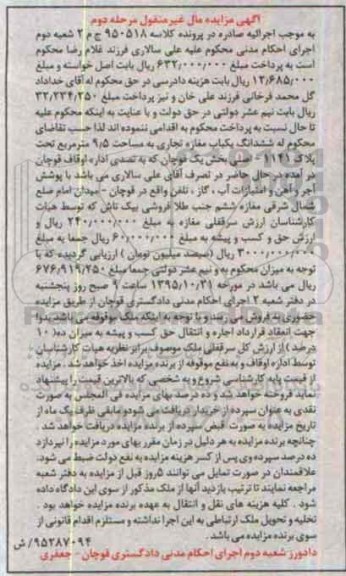 آگهی مزایده مال غیرمنقول مرحله دوم
به موجب اجرائیه صادره در پرونده کلاسه ۹۵۰۵۱۸ ج م ۲ شعبه دوم
اجرای احکام مدنی محکوم علیه علی سالاری فرزند غلام رضا محکوم
است به پرداخت مبلغ ۶۳۲/۰۰۰/۰۰۰ ریال بابت اصل خواسته و مبلغ
۱۲/۶۸۵/۰۰۰ ریال بابت هزینه دادرسی در حق محکوم له آقای خداداد
گل محمد فرخانی فرزند علی خان و نیز پرداخت مبلغ ۳۲/۲۳۴/۲۵۰
ریال بابت نیم عشر دولتی در حق دولت و با عنایت به اینکه محکوم علیه
تا حال نسبت به پرداخت محکوم به اقدامی ننموده اند لذا حسب تقاضای
محکوم له ششدانگ یکباب مغازه تجاری به مساحت ۹/۵ مترمربع تحت
پلاک ۱۱۴۱- اصلی بخش یک قوچان که به تصدی اداره اوقاف قوچان
در آمده در حال حاضر در تصرف آقای علی سالاری می باشد با پوشش
آجر و آهن و امتیازات آب ، گاز ، تلفن واقع در قوچان - میدان امام ضلع
شمال شرقی مغازه ششم جنب طلا فروشی بیک تاش که توسط هیات
کارشناسان ارزش سرقفلی مغازه به مبلغ ۲۴۰/۰۰۰/۰۰۰ ریال و
ارزش حق و کسب و پیشه به مبلغ ۶۰/۰۰۰/۰۰۰ ریال جمعا به مبلغ
۳۰۰۰/۰۰۰/۰۰۰ ریال (سیصد میلیون تومان ) ارزیابی گردیده که با
توجه به میزان محکوم به و نیم عشر دولتی جمعا مبلغ ۶۷۶/۹۱۹/۲۵۰
ریال می باشد در مورخه ۱۳۹۵/۱۰/۳۰ ساعت ۹ صبح روز پنجشنبه
در دفتر شعبه ۲ اجرای احکام مدنی دادگستری قوچان از طریق مزایده
حضوری به فروش می رسد و با توجه به اینکه ملک موقوفه می باشد بدوا
جهت انعقاد قرارداد اجاره و انتقال حق کسب و پیشه به میزان ده( ۱۰
درصد ) از ارزش کل سرقفلی ملک موصوف برابر نظریه هیات کارشناسان
توسط اداره اوقاف و به نفع موقوفه از برنده مزایده اخذ خواهد شد . مزایده
از قیمت پایه کارشناسی شروع و به شخصی که بالاترین قیمت را پیشنهاد
نماید فروخته خواهد شد و ده درصد بهای مزایده فی المجلس به صورت
نقدی به عنوان سپرده از خریدار دریافت می شود و مابقی ظرف یک ماه از
تاریخ مزایده به صورت قبض سپرده از برنده مزایده دریافت خواهد شد
چنانچه برنده مزایده به هر دلیل در زمان مقرر بهای مورد مزایده را نپردازد
ده درصد سپرده وی پس از کسر هزینه مزایده به نفع دولت ضبط می شود.
علاقمندان در صورت تمایل می توانند ۵روز قبل از مزایده به دفتر شعبه
مراجعه نمایند تا ترتیب بازدید آنها از ملک مذکور از سوی این دادگاه داده
شود . کلیه هزینه های نقل و انتقال به عهده برنده مزایده خواهد بود .
تخلیه و تحویل ملک ارتباطی به این اجرا نداشته و مستلزم اقدام قانونی از
سوی برنده مزایده می باشد. ۹۵۲۸۷۰۹۴/ ش
دادورز شعبه دوم اجرای احکام مدنی دادگستری قوچان - جعفری